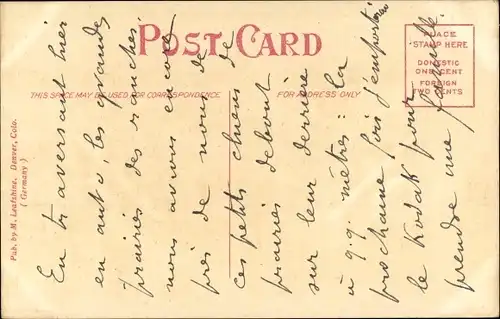 POST CARD
THIS SPACE MAY BE USED FOR CORRESPONDENCE
FOR ADDRESS ONLY
PLACE
STAMP HERE
DOMESTIC
ONE CENT
FOREIGN
TWO CENTS
Pub. by M. Leafshine. Denver, Colo.
(Germany)
En traversant hier
en auto, les grandes
prairies des ranches
nous avons encore
près de nous de
ces petits chiens de
prairies debout
sur leur derrière
à 9.9 mètres: la
prochaine fois j'emporterai
le Kodak pour
prendre une